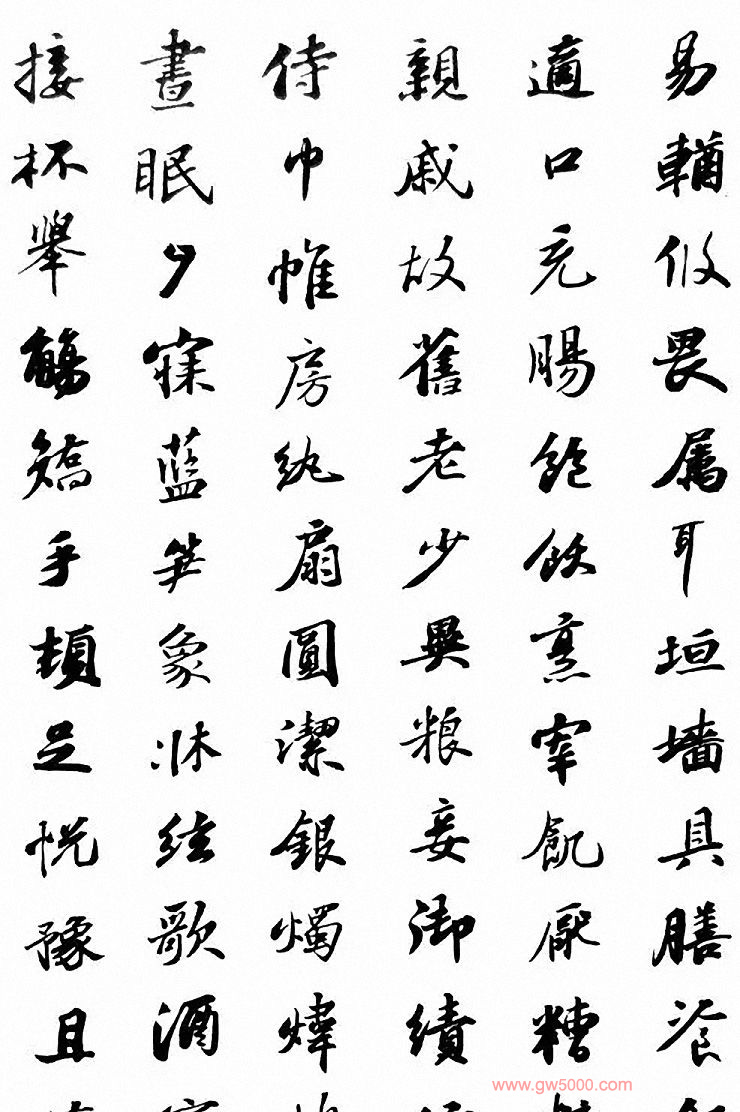 易輶攸畏屬耳垣墻具膳飡
適口充腸飽飫烹宰飢厭糟
親戚故舊老少異粮妾御績
侍巾帷房紈扇圓潔銀燭煒
晝眠夕寐藍笋象牀絃歌酒
接杯舉觴矯手頓足悦豫且
www.gw5000.com